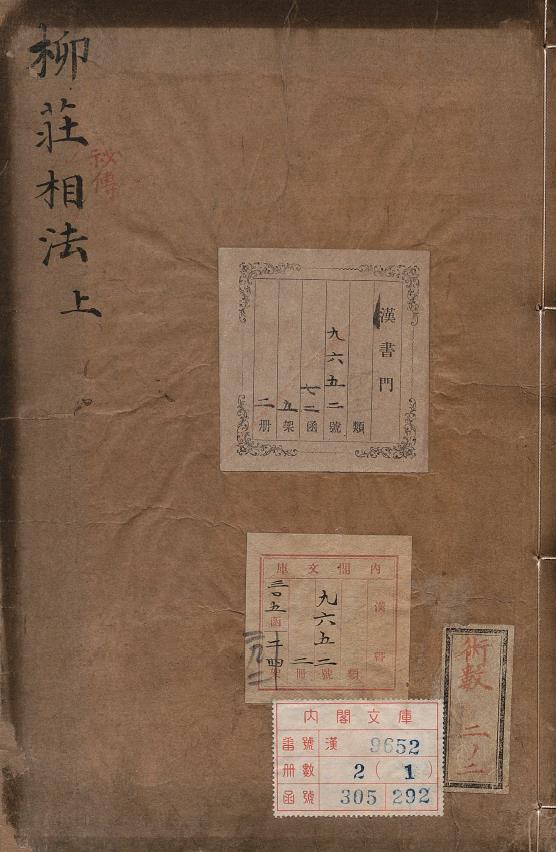 柳莊相法 上
祕傳
漢書門
類
九六五二號
七二函
九架
二册
內閣文庫
漢書
類
九六五二號
二冊
三〇五函
二四架
二九二
術數 二ノ二
内閣文庫
番號 漢 9652
册數 2(1)
函號 305 292